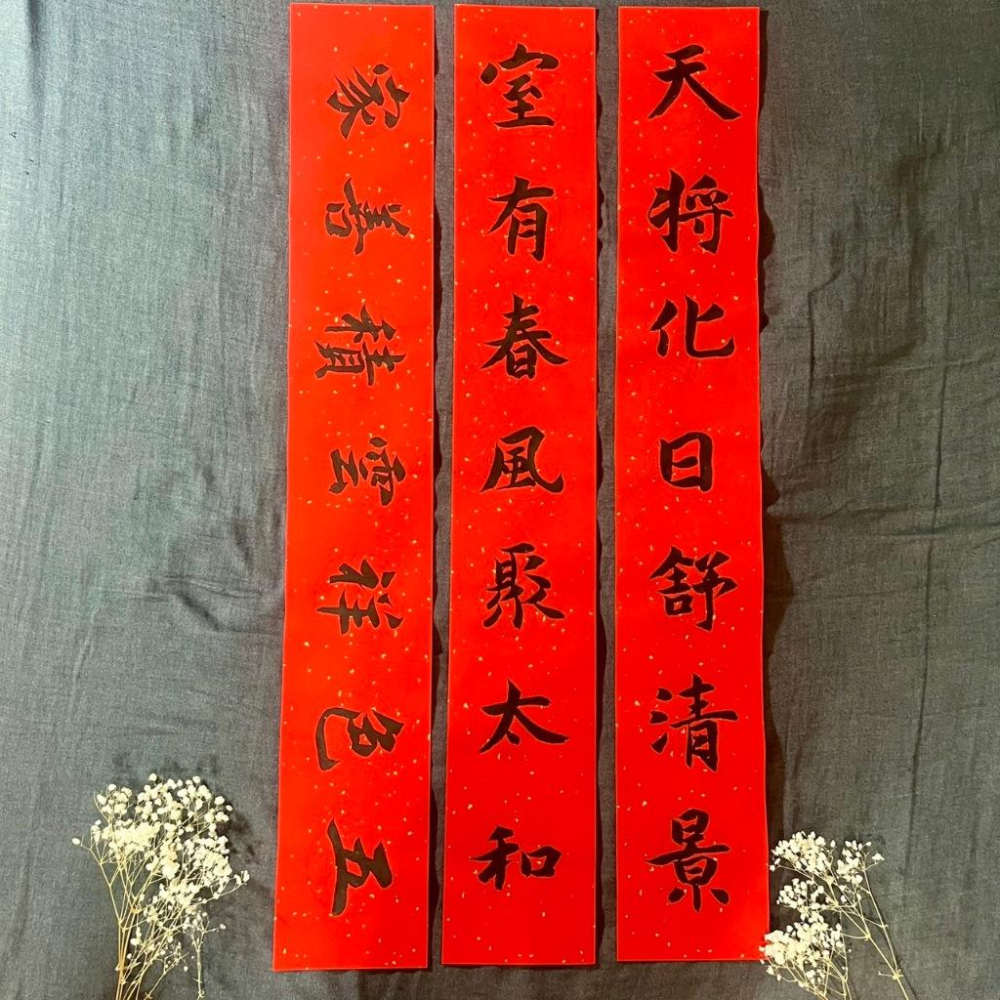 天将化日舒清景
室有春風聚太和
五色祥雲積善家